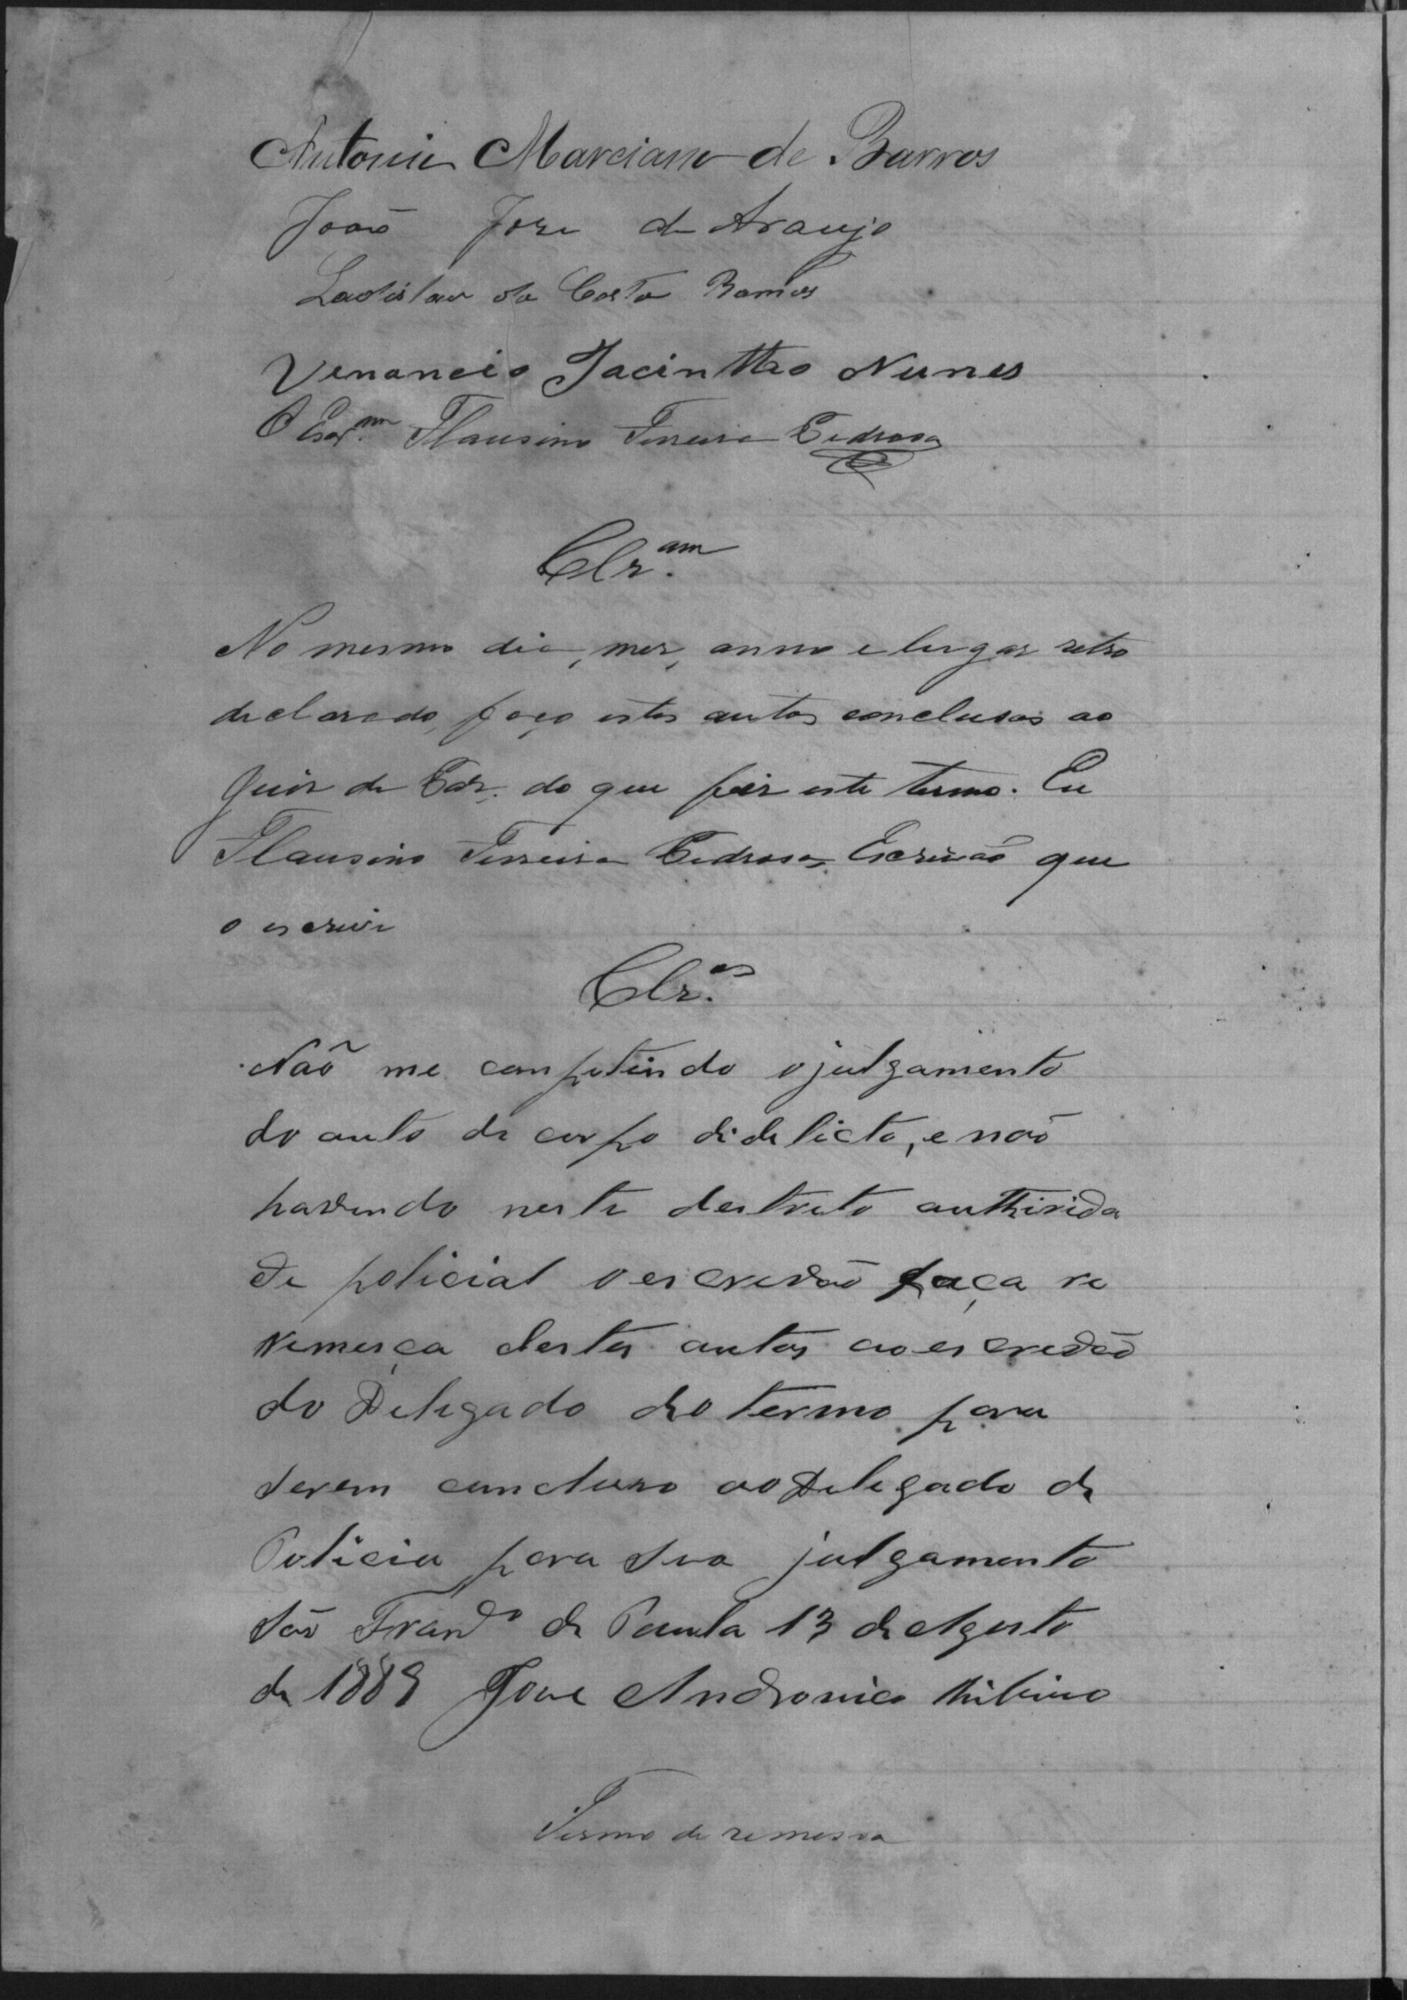 Antonio Marciano de Barros
João Jose de Araujo
Ladislau da Costa Ramos
Venancio Jacinttho Nunes
O Escr.am Flausino Ferreira Pedrosa
Clz.am
No mesmo dia, mez, anno e lugar retro
declarado, faço estes autos conclusos ao
Juiz de Paz, do que fiz este termo. Eu
Flausino Ferreira Pedrosa, Escrivão que
o escrevi
Clz.os
Não me competindo o julgamento
do auto de corpo didelicto, e não
havendo neste destreto autthirida
de policial o escrevão faça re
Nemerça destes autos ao escrevão
do Delegado do termo para
serem concluso ao Delegado de
Policia para sua julgamento
São Fran.do de Paula 13 de Agosto
de 1889 Jose Andronico
Termo de remessa